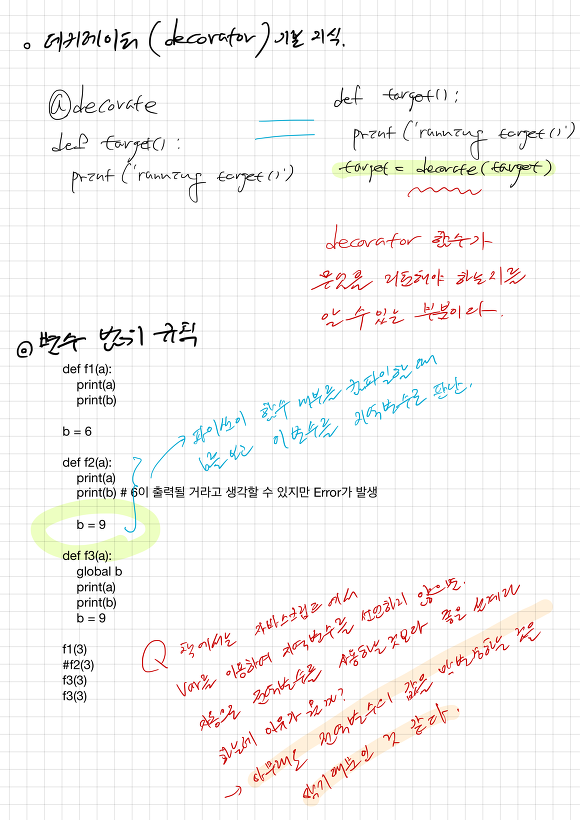 데커레이터 (decorator) 기본 지식.
@decorate
def target():
print('running target()')
def target():
print('running target()')
target = decorate(target)
decorator 함수가
무엇을 리턴해야 하는지를
알 수 있는 부분이다.
변수 범위 규칙
def f1(a):
print(a)
print(b)
b = 6
def f2(a):
print(a)
print(b) # 6이 출력될 거라고 생각할 수 있지만 Error가 발생
b = 9
→ 파이썬이 함수 내부를 컴파일할 때
b를 보고 이 변수를 지역변수로 판단.
def f3(a):
global b
print(a)
print(b)
b = 9
f1(3)
#f2(3)
f3(3)
f3(3)
Q 책에서는 자바스크립트에서
var을 이용하여 지역변수를 선언하지 않으면.
자동으로 전역변수를 사용하는 것보다 좋은 설계라
하는데 이유가 뭘까?
→ 아무래도 전역변수의 값을 변동하는 것을
막기 때문인 것 같다.